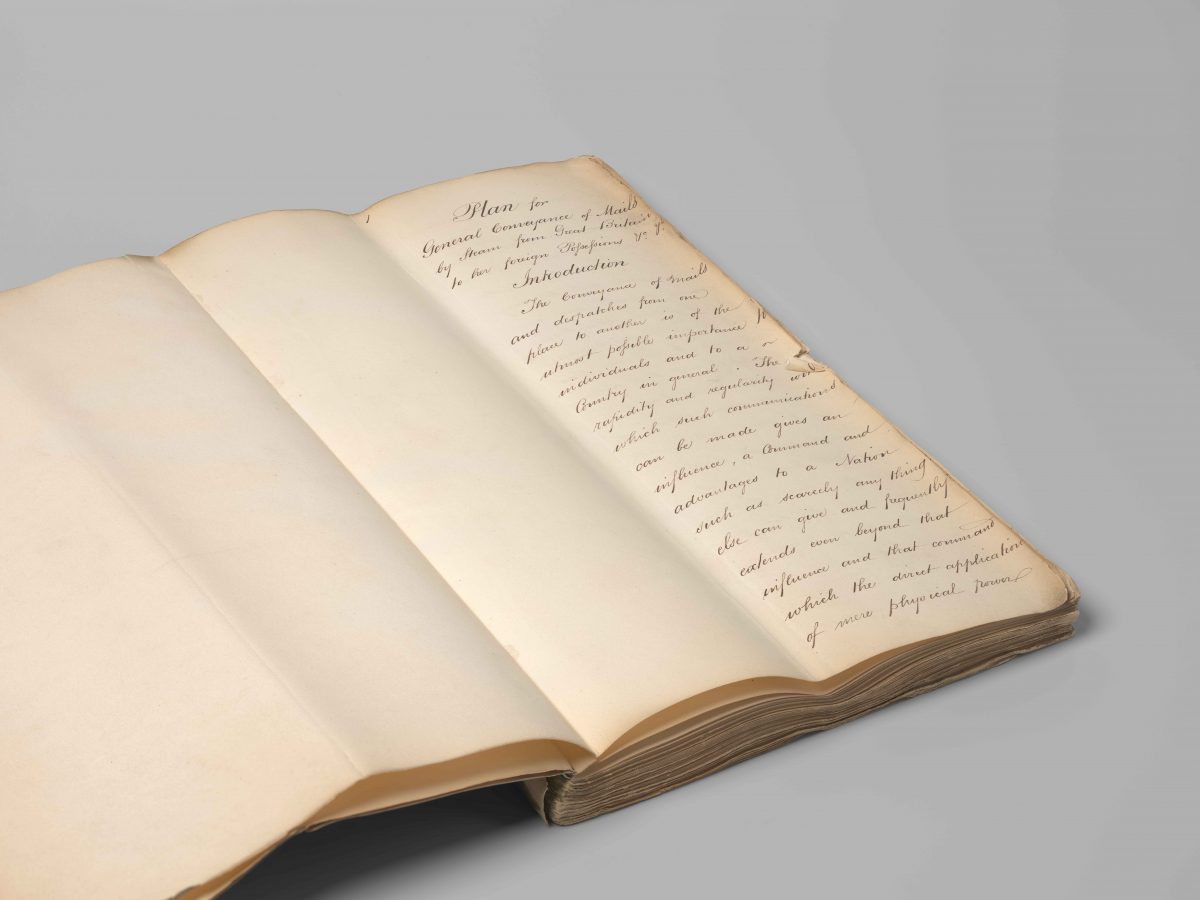 1
Plan for
General Conveyance of Mails
by Steam from Great Britain
to her foreign Possessions &c. &c.
Introduction
The Conveyance of Mails
and despatches from one
place to another is of the
utmost possible importance to
individuals and to a
Country in general. The
rapidity and regularity with
which such communications
can be made gives an
influence, a Command and
advantages to a Nation
such as scarcely any thing
else can give and frequently
extends even beyond that
influence and that command
which the direct application
of mere physical power